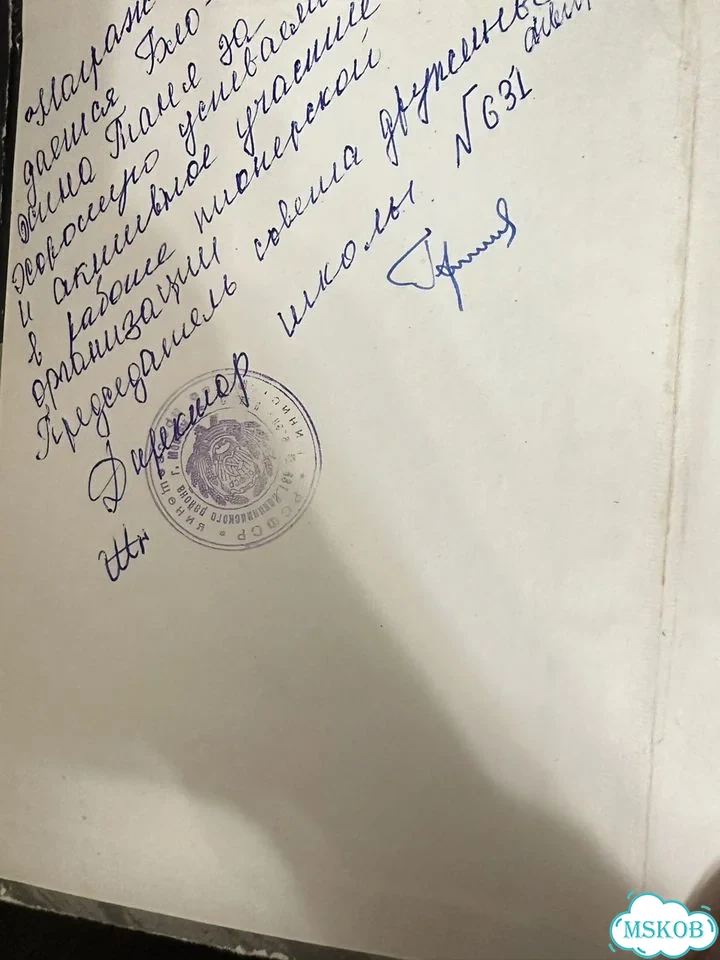 Награж-
дается Бло-
хина Таня за
хорошую успеваем
и активное участие
в работе пионерской
организации.
Председатель совета дружины
Директор школы №631
РСФСР
MSKOB